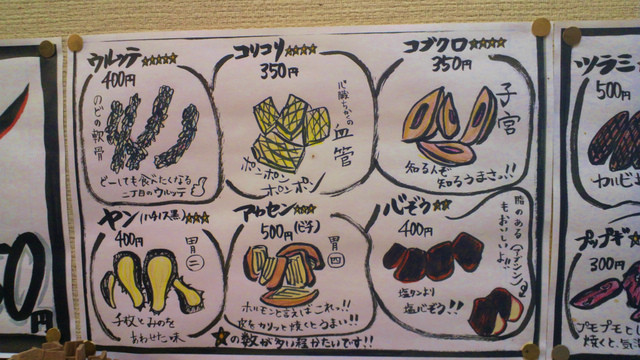 ウルッテ★★★★★
400円
のどの軟骨
どーしても食べたくなる
二丁目のウルッテ
コリコリ★★★★
350円
心臓ちかくの
血管
ポンポン
ポンポン
コブクロ★★★★
350円
子宮
知るんぞ
知るうまさっ!!
ヤン(ハチノス黒)★★★
400円
胃二
千枚とみのを
あわせた味
アカセン★★★
500円(ピチ)
胃四
ホルモンと言えばこれっ!!
皮をカリッと焼くとうまい!!
心ぞう★★
400円
脂のある(アブシン)
もおいしいよ!!
塩タンより
塩心ぞう!!
★の数が多い程かたいです!!
ツラミ
500円
カルビ
プップギ
300円
プモプモと
焼くと、気
50円